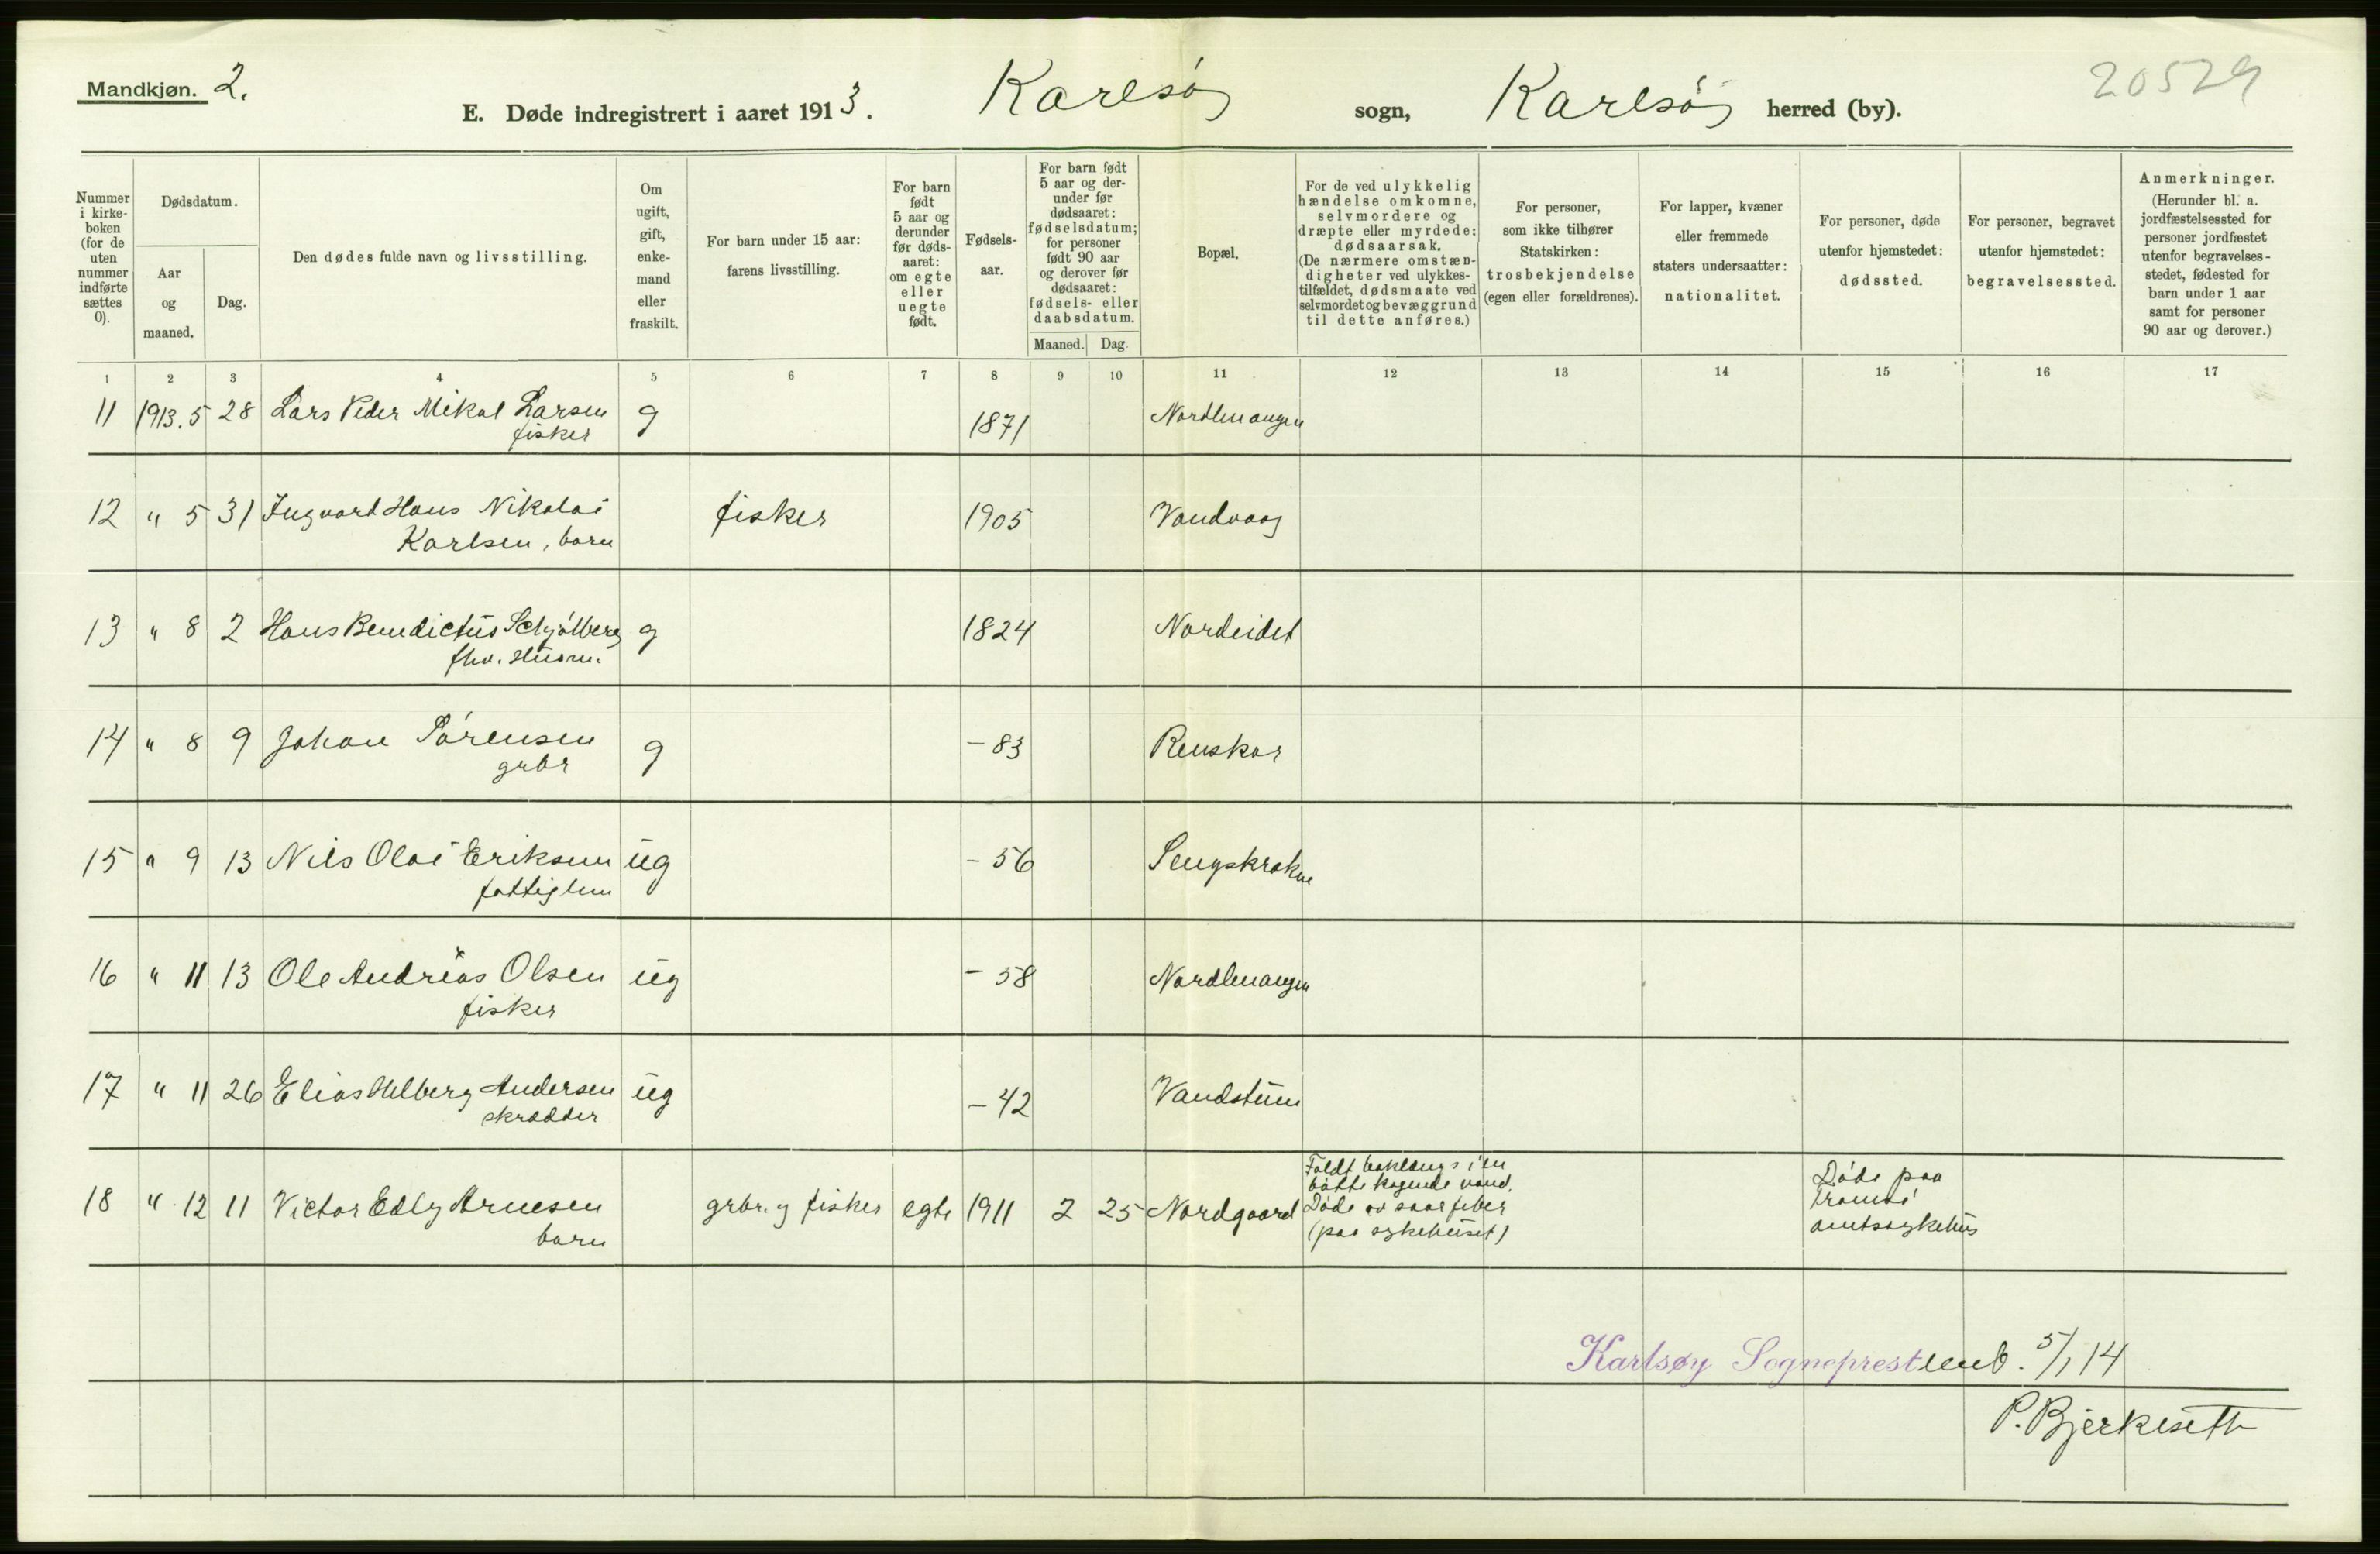 Mandkjøn. 2.
20529
E. Døde indregistrert i aaret 1913. Karlsöy sogn, Karlsöy herred (by).
Nummer i kirke-boken (for de uten nummer indførte sættes 0).
Dødsdatum.
Aar og maaned.
Dag.
Den dødes fulde navn og livsstilling.
Om ugift, gift, enke-mand eller fraskilt.
For barn under 15 aar: farens livsstilling.
For barn født 5 aar og derunder før døds-aaret: om egte eller uegte født.
Fødsels-aar.
For barn født 5 aar og der-under før dødsaaret: fødselsdatum; for personer født 90 aar og derover før dødsaaret: fødsels- eller daabsdatum.
Maaned. Dag.
Bopæl.
For de ved ulykkelig hændelse omkomne, selvmordere og dræpte eller myrdede: dødsaarsak. (De nærmere omstæn-digheter ved ulykkes-tilfældet, dødsmaate ved selvmordet og bevæggrund til dette anføres.)
For personer, som ikke tilhører Statskirken: trosbekjendelse (egen eller forældrenes).
For lapper, kvæner eller fremmede staters undersaatter: nationalitet.
For personer, døde utenfor hjemstedet: dødssted.
For personer, begravet utenfor hjemstedet: begravelsessted.
Anmerkninger. (Herunder bl. a. jordfæstelsessted for personer jordfæstet utenfor begravelses-stedet, fødested for barn under 1 aar samt for personer 90 aar og derover.)
1 2 3 4 5 6 7 8 9 10 11 12 13 14 15 16 17
11 1913. 5 28 Lars Peder Mikal Larsen g 1871 Nordlenangen
fisker
12 " 5 31 Ingvard Hans Nikolai fisker 1905 Vandvaag
Karlsen, barn
13 " 8 2 Hans Benedictus Schjölberg g 1824 Nordeidet
fhv. Husm.
14 " 8 9 Johan Sörensen g - 83 Renskar
grbr
15 " 9 13 Nils Olai Eriksen ug - 56 Lengskrokne
fattiglem
16 " 11 13 Ole Andreas Olsen ug - 58 Nordlenangen
fisker
17 " 11 26 Elias Andersen ug - 42 Vandstuen
skrædder
18 " 12 11 Victor Edly Arnesen grbr. og fisker egte 1911 2 25 Nordgaard
barn
Faldt baklængs i en
bötte kogende vand.
Döde av saarfeber
(paa sykehuset)
Döde paa
Tromsö
amtssykehus
Karlsøy Sogneprestemb. 5/1 14
P. Bjerkeseth